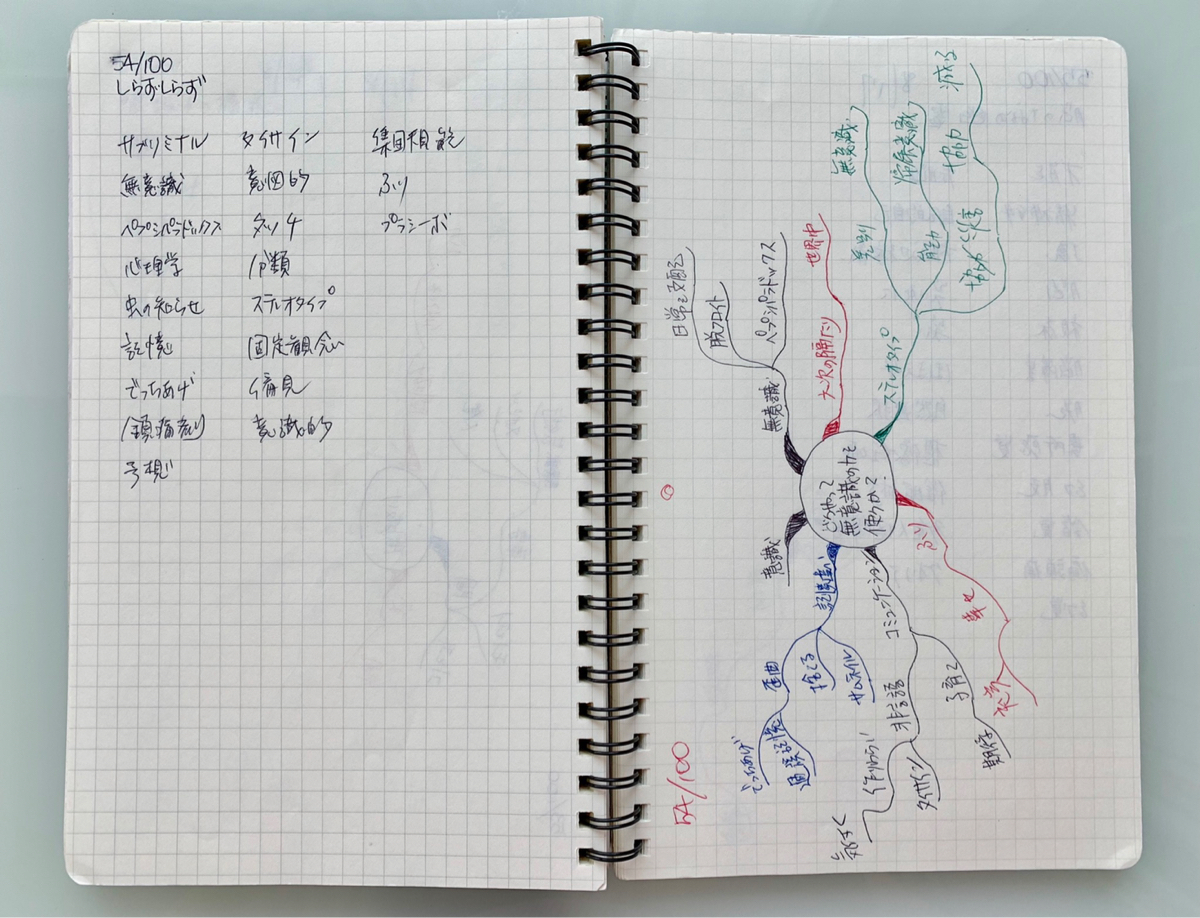 54/100
しらずしらず
サブリミナル
無意識
ペプシパラドックス
心理学
虫の知らせ
記憶
でっちあげ
予想
タイサイン
意図的
タッチ
分類
ステレオタイプ
固定観念
偏見
意識的
集団
ふり
プラシーボ
54/100
どうやって
無意識の力を
使うか?
無意識
ペプシパラドックス
脱フロイト
日常を支配
大次の隔たり
世界中
ステレオタイプ
差別
無意識
能力
帰属意識
協力
減る
ふり
幸せ
コミュニケーション
子育て
期待
非言語
タイサイン
気づく
記憶違い
サムネイル
捨てる
歪曲
過誤記憶
でっちあげ
意識